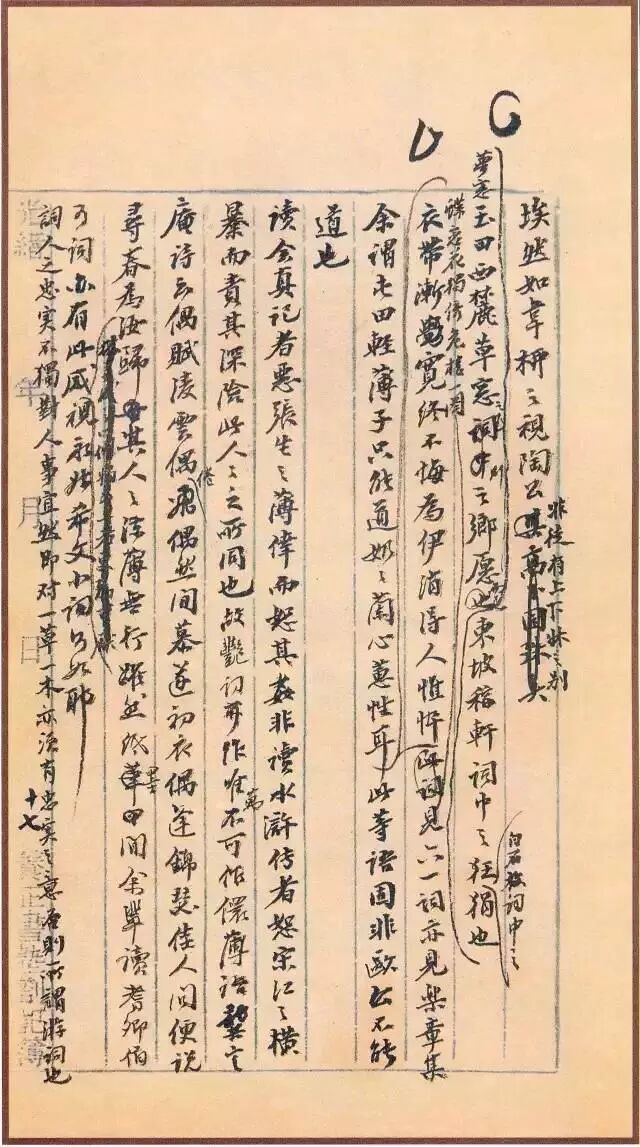 埃然如韋柳之視陶公非徒有上下牀之別
夢窗玉田西麓草窗之詞則詞中之鄉愿也東坡稼軒詞中之狂狷也
白石放詞中之
蝶戀花獨倚危樓一闋
衣帶漸覺寬終不悔為伊消得人憔悴此詞見六一詞亦見樂章集
余謂屯田輕薄子只能道奶奶蘭心蕙性耳此等語固非歐公不能
道也
读会真记者惡张生之薄倖而恕其姦非读水滸传者恕宋江之橫
暴而責其深險此人人之所同也故艷詞可作唯萬不可作儇薄語龔定
庵詩云偶賦凌雲偶倦飛偶然間慕遂初衣偶逢錦瑟佳人問便說
尋春為汝歸其人之涼薄無行躍然紙墨間余輩讀耆卿伯
可詞亦有此感視永叔希文小詞何如耶
詞人之忠實不獨對人事宜然即对一草一木亦須有忠實之意否則所謂游詞也
十七
光緒 年 月 日 養正書塾劄記簿